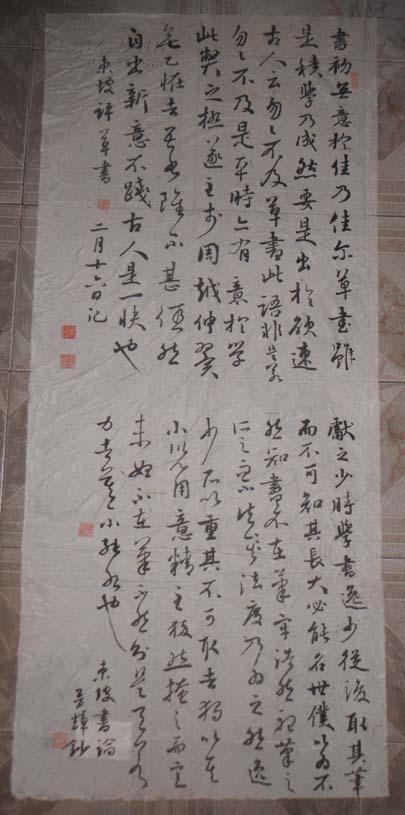 書初無意於佳乃佳尔草書雖
是積學乃成然要是出於欲速
古人云匆匆不及草書此語非是若
匆匆不及是平時亦有意於學
此弊之極遂至於周越仲翼
無足怪者吾書雖不甚佳然
自出新意不踐古人是一快也
東坡評草書 二月十六日記
獻之少時學書逸少從後取其筆
而不可知其長大必能名世僕以為不
然知書不在筆牢浩然聽筆之
所之而不失法度乃為之然逸
少所以重其不可取者獨以其
小兒用意精至猝然掩之而意
未始不在筆不然則是天下有
力者莫不能書也
東坡書論
鈔